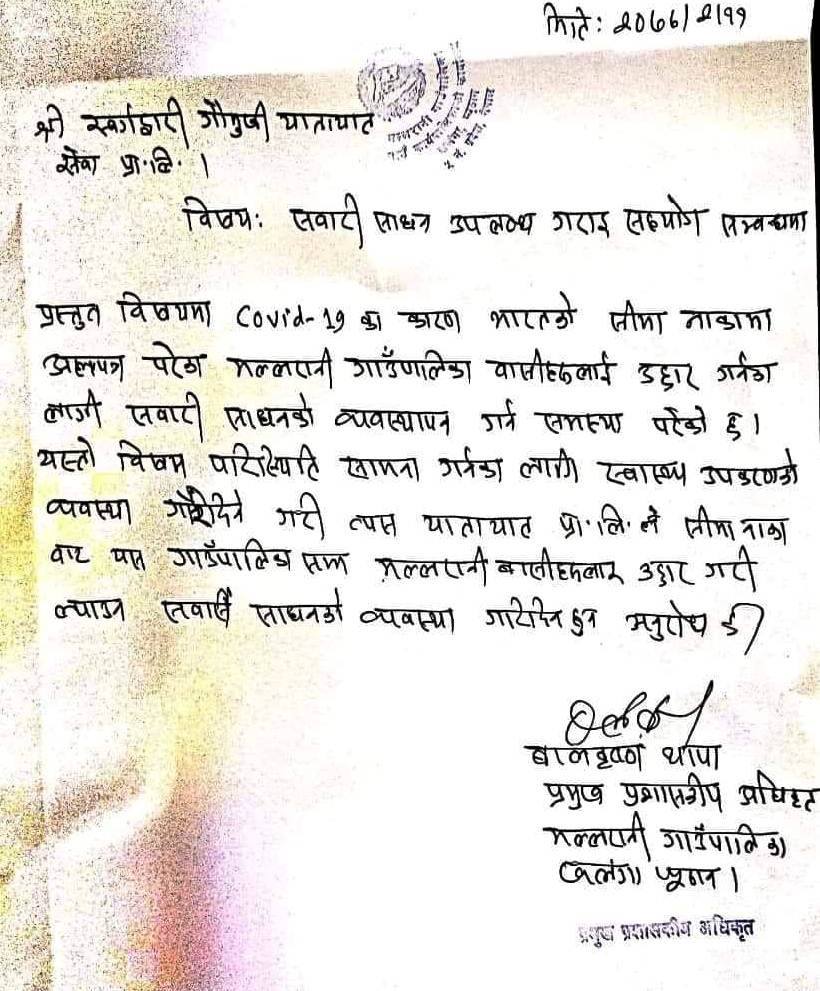 मिति: २०७७/२/११
श्री स्वर्गद्वारी गौमुखी यातायात
सेवा प्रा.लि. ।
विषय: सवारी साधन उपलब्ध गराइ सहयोग सम्बन्धमा
प्रस्तुत विषयमा Covid-19 का कारण भारतको सीमा नाकामा
अलपत्र परेका मल्लरानी गाउँपालिका वासीहरुलाई उद्दार गर्नका
लागी सवारी साधनको व्यवस्थापन गर्न समस्या परेको छ ।
यस्तो विषम परिस्थिति सामना गर्नका लागी स्वास्थ्य उपकरणको
व्यवस्था गरिदिने गरी त्यस यातायात प्रा.लि. ले सीमा नाका
बाट यस गाउँपालिका सम्म मल्लरानी बासीहरुलाइ उद्दार गरी
ल्याउन सवारी साधनको व्यवस्था गरिदिन हुन अनुरोध छ
बालकृष्ण थापा
प्रमुख प्रशासकीय अधिकृत
मल्लरानी गाउँपालिका
खलंगा प्यूठान ।
प्रमुख प्रशासकीय अधिकृत